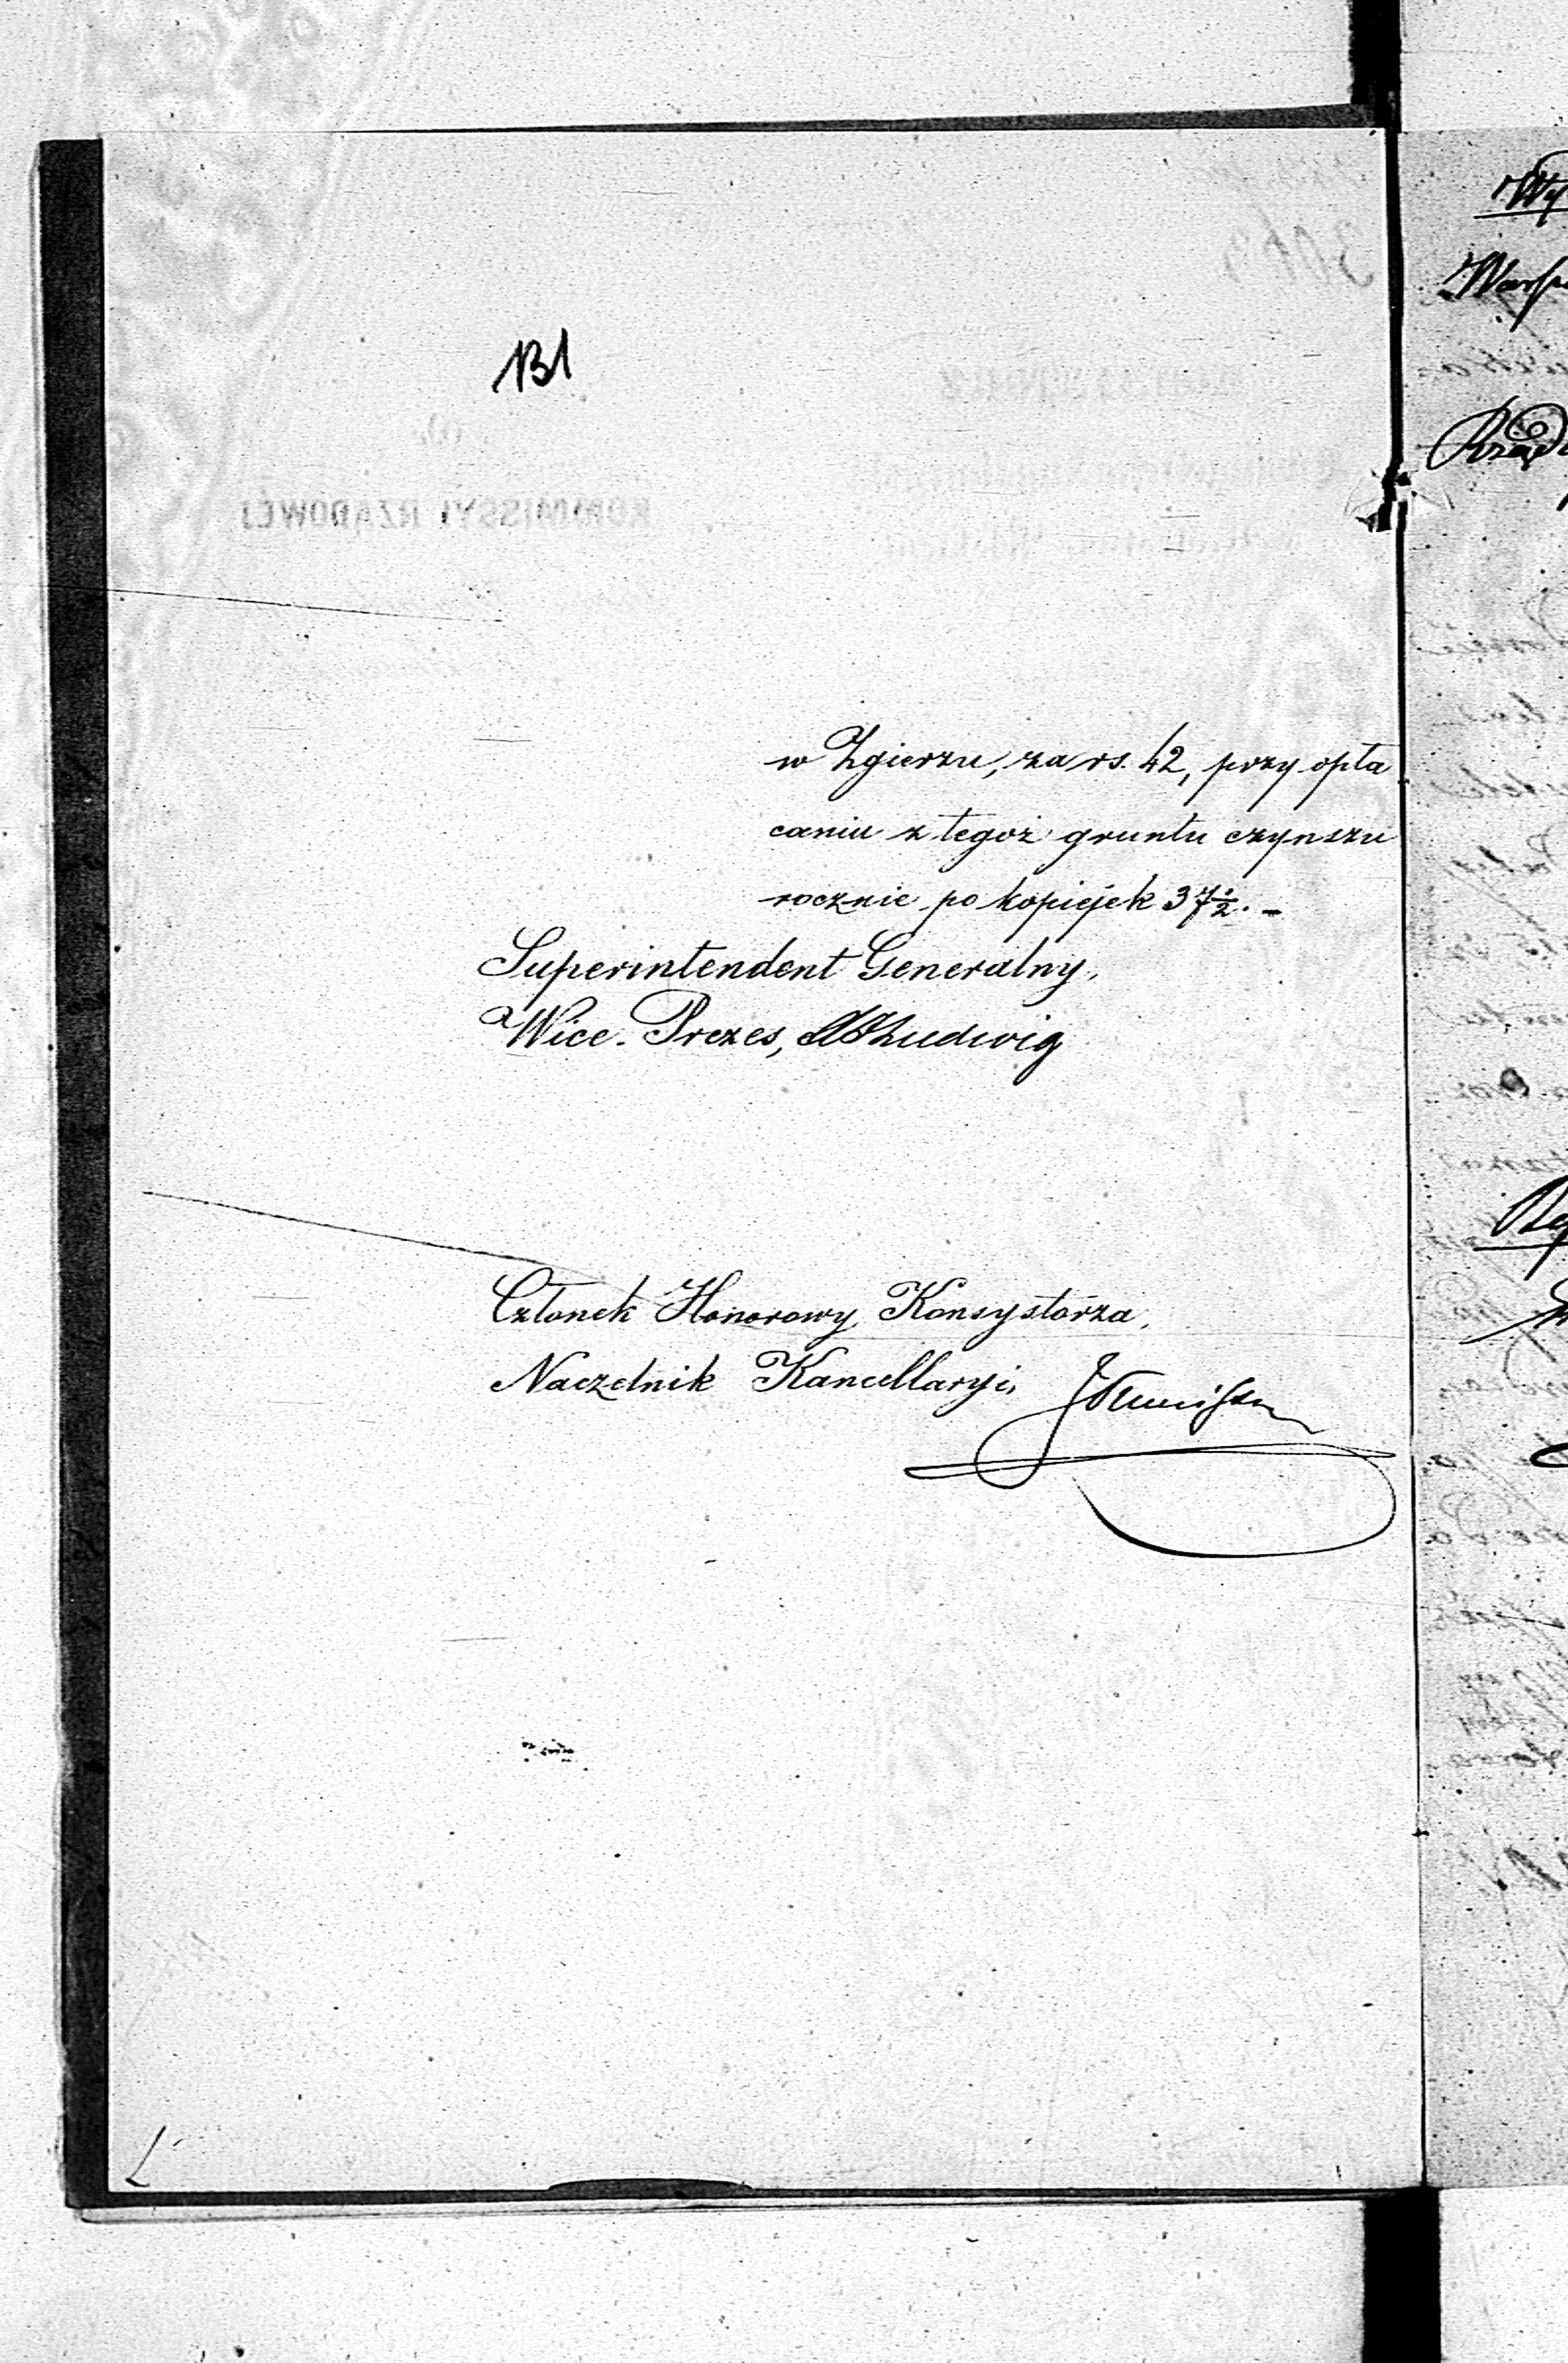 131
w Zgierzu, za rs. 42, przy opła
caniu z tegoż gruntu czynszu
rocznie po kopiejek 37½. –
Superintendent Generalny,
Wice. Prezes, Ludwig
Członek Honorowy Konsystorza,
Naczelnik Kancellaryi,